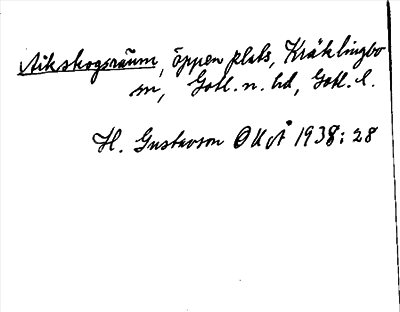 Aikskogsräum, öppen plats, Kräklingbo
sn, Gotl. n. hd, Gotl. l.
H. Gustavson OUÅ 1938: 28